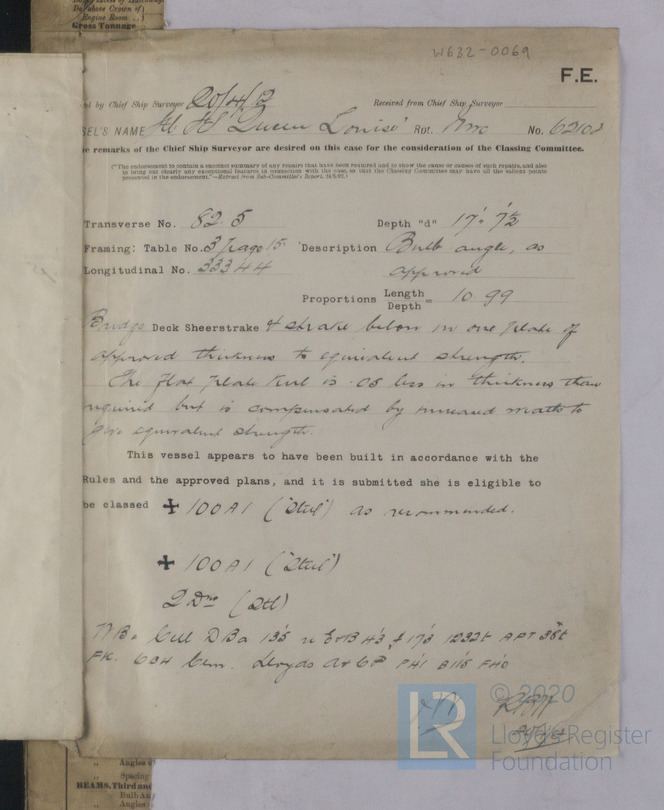 Gross Tonnage
Engine Room
W632-0069
F.E.
nt by Chief Ship Surveyor 20/4/12 Received from Chief Ship Surveyor
SEL'S NAME "Queen Louise" Rpt. Nwc No. 62102
e remarks of the Chief Ship Surveyor are desired on this case for the consideration of the Classing Committee.
("The endorsement to contain a succinct summary of any repairs that have been required and to show the cause or causes of such repairs, and also
to bring out clearly any exceptional features in connection with the case, so that the Classing Committee may have all the salient points
presented in the endorsement."—Extract from Sub-Committee's Report,
Transverse No. 82.5 Depth "d" 17'. 7½
Framing: Table No. 3 Page 15 Description Bulb angle, as
Longitudinal No. 33344 approved
Proportions Length/Depth = 10.99
Bridge Deck Sheerstrake & strake below in one plate of
approved thickness to equivalent strength.
The flat plate keel is .08 less in thickness than
required but is compensated by increased width to
give equivalent strength.
This vessel appears to have been built in accordance with the
Rules and the approved plans, and it is submitted she is eligible to
be classed ✠ 100A1 ("Steel") as recommended.
✠ 100A1 ("Steel")
2 Dks (Stl)
Cell DBa 135 1232t APT 38t
FK. Cem. Lloyds A&CP P41 B115 F40
© 2020
LR
Lloyd's Register
Foundation
" Angles
" Spacing
BEAMS, Third and
" Angles